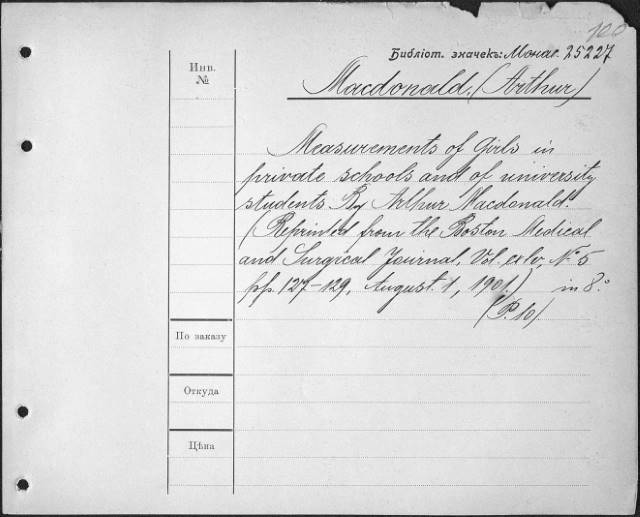 120
Библіот. значекъ: Монас. 25227
Инв.
№
Macdonald, (Arthur)
Measurements of Girls in
private schools and of university
students By Arthur Macdonald.
(Reprinted from the Boston Medical
and Surgical Journal, Vol. cxlv, № 5
pp. 127–129, August 1, 1901.) in 8.°
(P. 10).
По заказу
Откуда
Цѣна